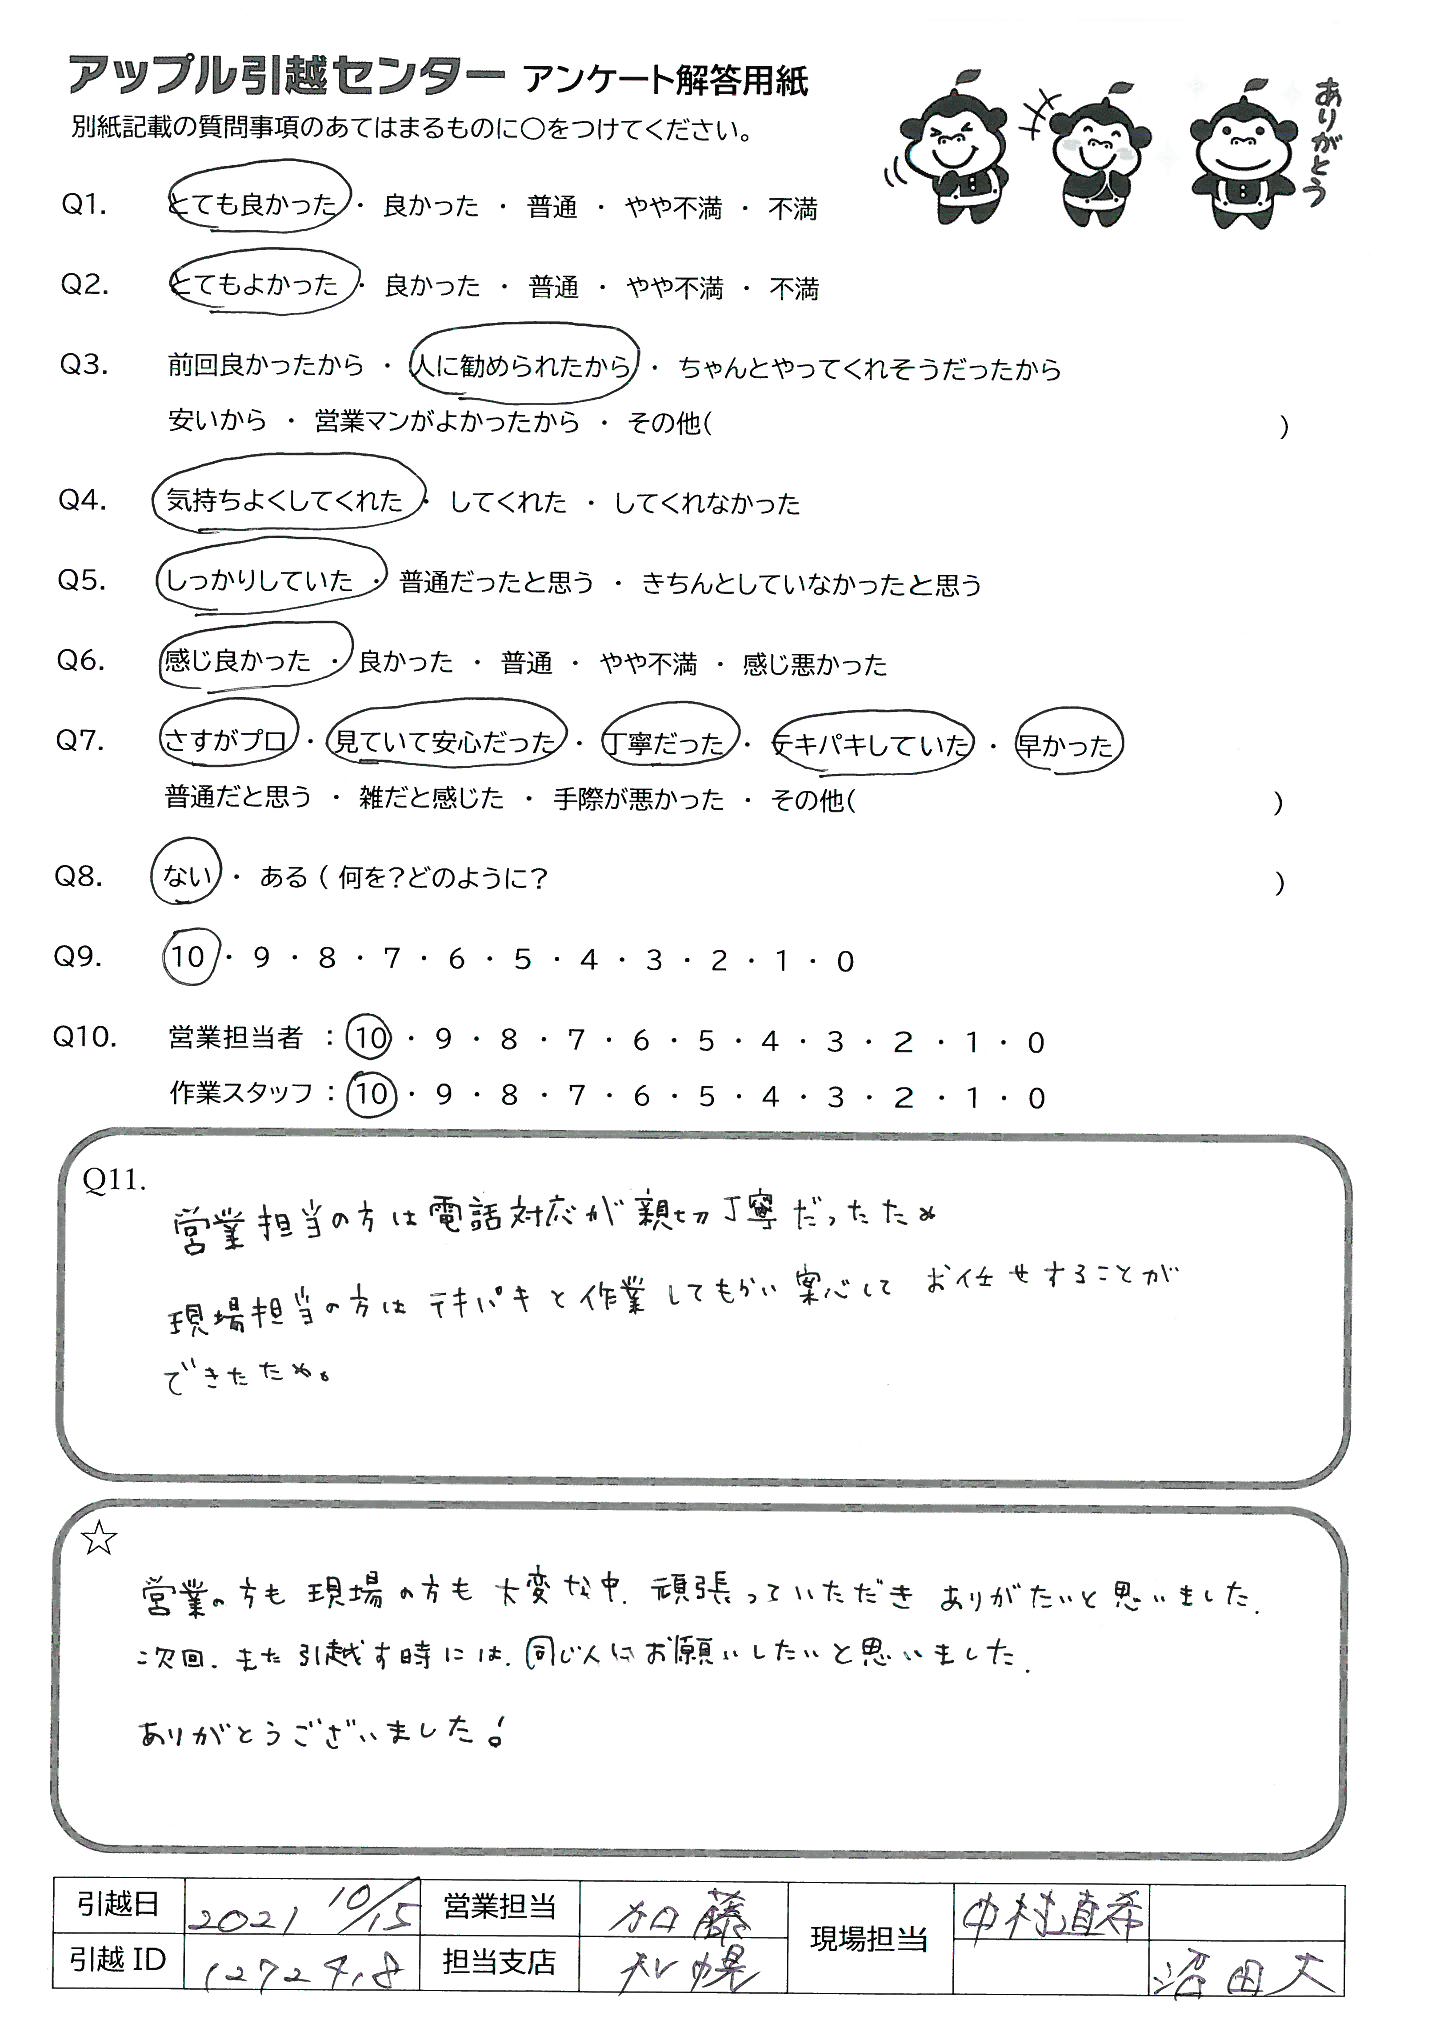 アップル引越センター アンケート解答用紙
別紙記載の質問事項のあてはまるものに○をつけてください。
ありがとう
Q1. とても良かった ・ 良かった ・ 普通 ・ やや不満 ・ 不満
Q2. とてもよかった ・ 良かった ・ 普通 ・ やや不満 ・ 不満
Q3. 前回良かったから ・ 人に勧められたから ・ ちゃんとやってくれそうだったから
安いから ・ 営業マンがよかったから ・ その他( )
Q4. 気持ちよくしてくれた ・ してくれた ・ してくれなかった
Q5. しっかりしていた ・ 普通だったと思う ・ きちんとしていなかったと思う
Q6. 感じ良かった ・ 良かった ・ 普通 ・ やや不満 ・ 感じ悪かった
Q7. さすがプロ ・ 見ていて安心だった ・ 丁寧だった ・ テキパキしていた ・ 早かった
普通だと思う ・ 雑だと感じた ・ 手際が悪かった ・ その他( )
Q8. ない ・ ある ( 何を?どのように? )
Q9. 10 ・ 9 ・ 8 ・ 7 ・ 6 ・ 5 ・ 4 ・ 3 ・ 2 ・ 1 ・ 0
Q10. 営業担当者 : 10 ・ 9 ・ 8 ・ 7 ・ 6 ・ 5 ・ 4 ・ 3 ・ 2 ・ 1 ・ 0
作業スタッフ : 10 ・ 9 ・ 8 ・ 7 ・ 6 ・ 5 ・ 4 ・ 3 ・ 2 ・ 1 ・ 0
Q11.
営業担当の方は電話対応が親切丁寧だったため
現場担当の方はテキパキと作業してもらい案心して お任せすることが
できたため。
☆
営業の方も現場の方も大変な中、頑張っていただき ありがたいと思いました.
次回、また引越す時には、同じ人にお願いしたいと思いました.
ありがとうございました!
引越日 2021 10/15 営業担当 加藤 現場担当 中村直希
引越 ID 担当支店 札幌 沼田大